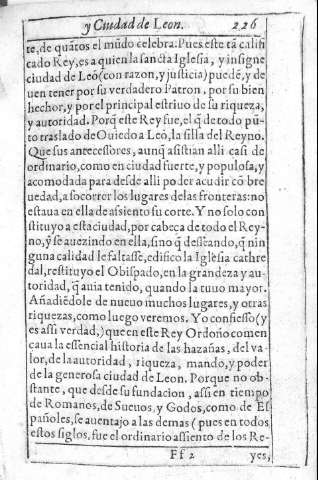 y Ciudad de Leon. 226
te, de quãtos el mũdo celebra. Pues este tã califi
cado Rey, es a quien la sancta Iglesia, y insigne
ciudad de Leõ (con razon, y justicia) puedẽ, y de
uen tener por su verdadero Patron, por su bien
hechor, y por el principal estriuo de su riqueza,
y autoridad. Porq̃ este Rey fue, el q̃ de todo pũ-
to traslado de Ouiedo a Leõ, la silla del Reyno.
Que sus antecessores, aunq̃ asistian alli casi de
ordinario, como en ciudad fuerte, y populosa, y
acomodada para desde alli poder acudir cõ bre
uedad, a socorrer los lugares de las fronteras: no
estaua en ella de assiento su corte. Y no solo con
stituyo a esta ciudad, por cabeça de todo el Rey-
no, y se auezindo en ella, sino q̃ desseando, q̃ nin
guna calidad le faltasse, edifico la Iglesia cathre
dal, restituyo el Obispado, en la grandeza y au-
toridad, q̃ auia tenido, quando la tuuo mayor.
Añadiẽdole de nueuo muchos lugares, y otras
riquezas, como luego veremos. Yo confiesso (y
es assi verdad,) que en este Rey Ordoño comen
çaua la essencial historia de las hazañas, del va-
lor, de la autoridad, riqueza, mando, y poder
de la generosa ciudad de Leon. Porque no ob-
stante, que desde su fundacion, assi en tiempo
de Romanos, de Sueuos, y Godos, como de Es
pañoles, se auentajo a las demas (pues en todos
estos siglos, fue el ordinario assiento de los Re-
Ff 2 yes,